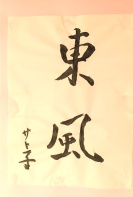 東風
サト子